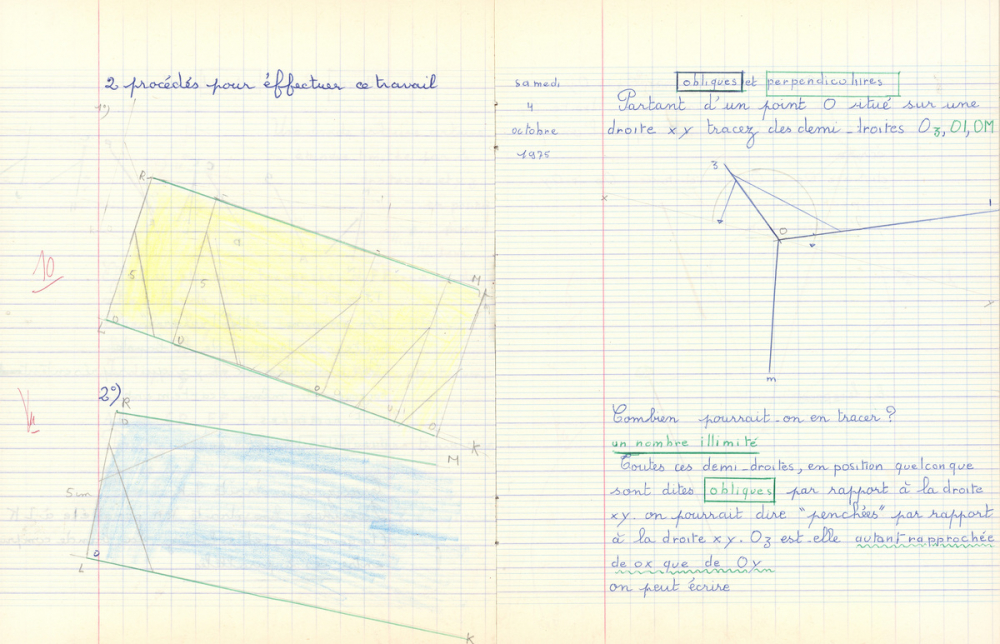 2 procédés pour éffectuer ce travail
1º)
R
9
5
5
M
L
D
D
O
U
O
K
10
2º)
R
D
M
5 cm
L
K
samedi
4
octobre
1975
obliques et perpendiculaires
Partant d'un point O situé sur une
droite xy tracez des demi-droites Oz, Ol, OM
z
l
O
x
m
Combien pourrait-on en tracer ?
un nombre illimité
Toutes ces demi-droites, en position quelconque
sont dites obliques par rapport à la droite
xy. on pourrait dire "penchées" par rapport
à la droite xy. Oz est-elle autant rapprochée
de ox que de Oy
on peut écrire